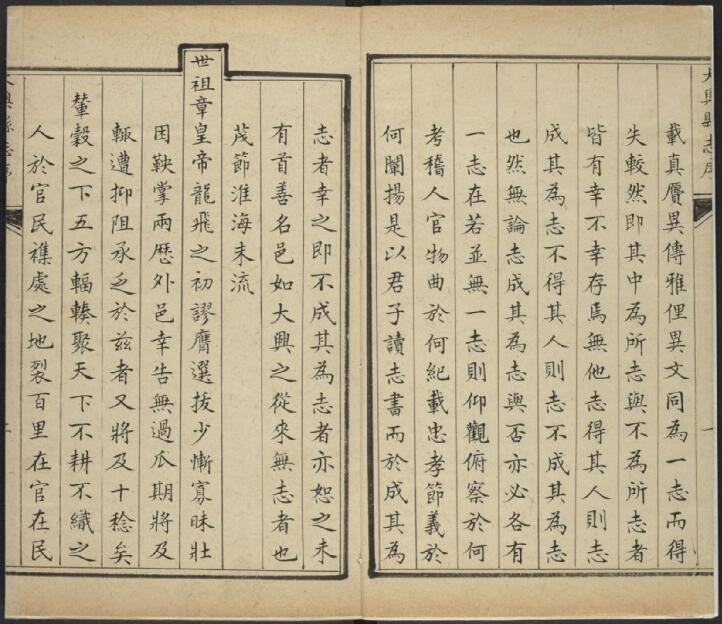 大興縣志序
載真贗異傳雅俚異文同為一志而得
失較然即其中為所志與不為所志者
皆有幸不幸存焉無他志得其人則志
成其為志不得其人則志不成其為志
也然無論志成其為志與否亦必各有
一志在若並無一志則仰觀俯察於何
考稽人官物曲於何紀載忠孝節義於
何闡揚是以君子讀志書而於成其為
志者幸之即不成其為志者亦恕之未
有首善名邑如大興之從來無志者也
茂節淮海末流
世祖章皇帝龍飛之初謬膺選拔少慚寡昧壯
因鞅掌兩歷外邑幸告無過瓜期將及
輒遭抑阻承乏於茲者又將及十稔矣
輦轂之下五方輻輳聚天下不耕不織之
人於官民襍處之地裂百里在官在民
大興縣志